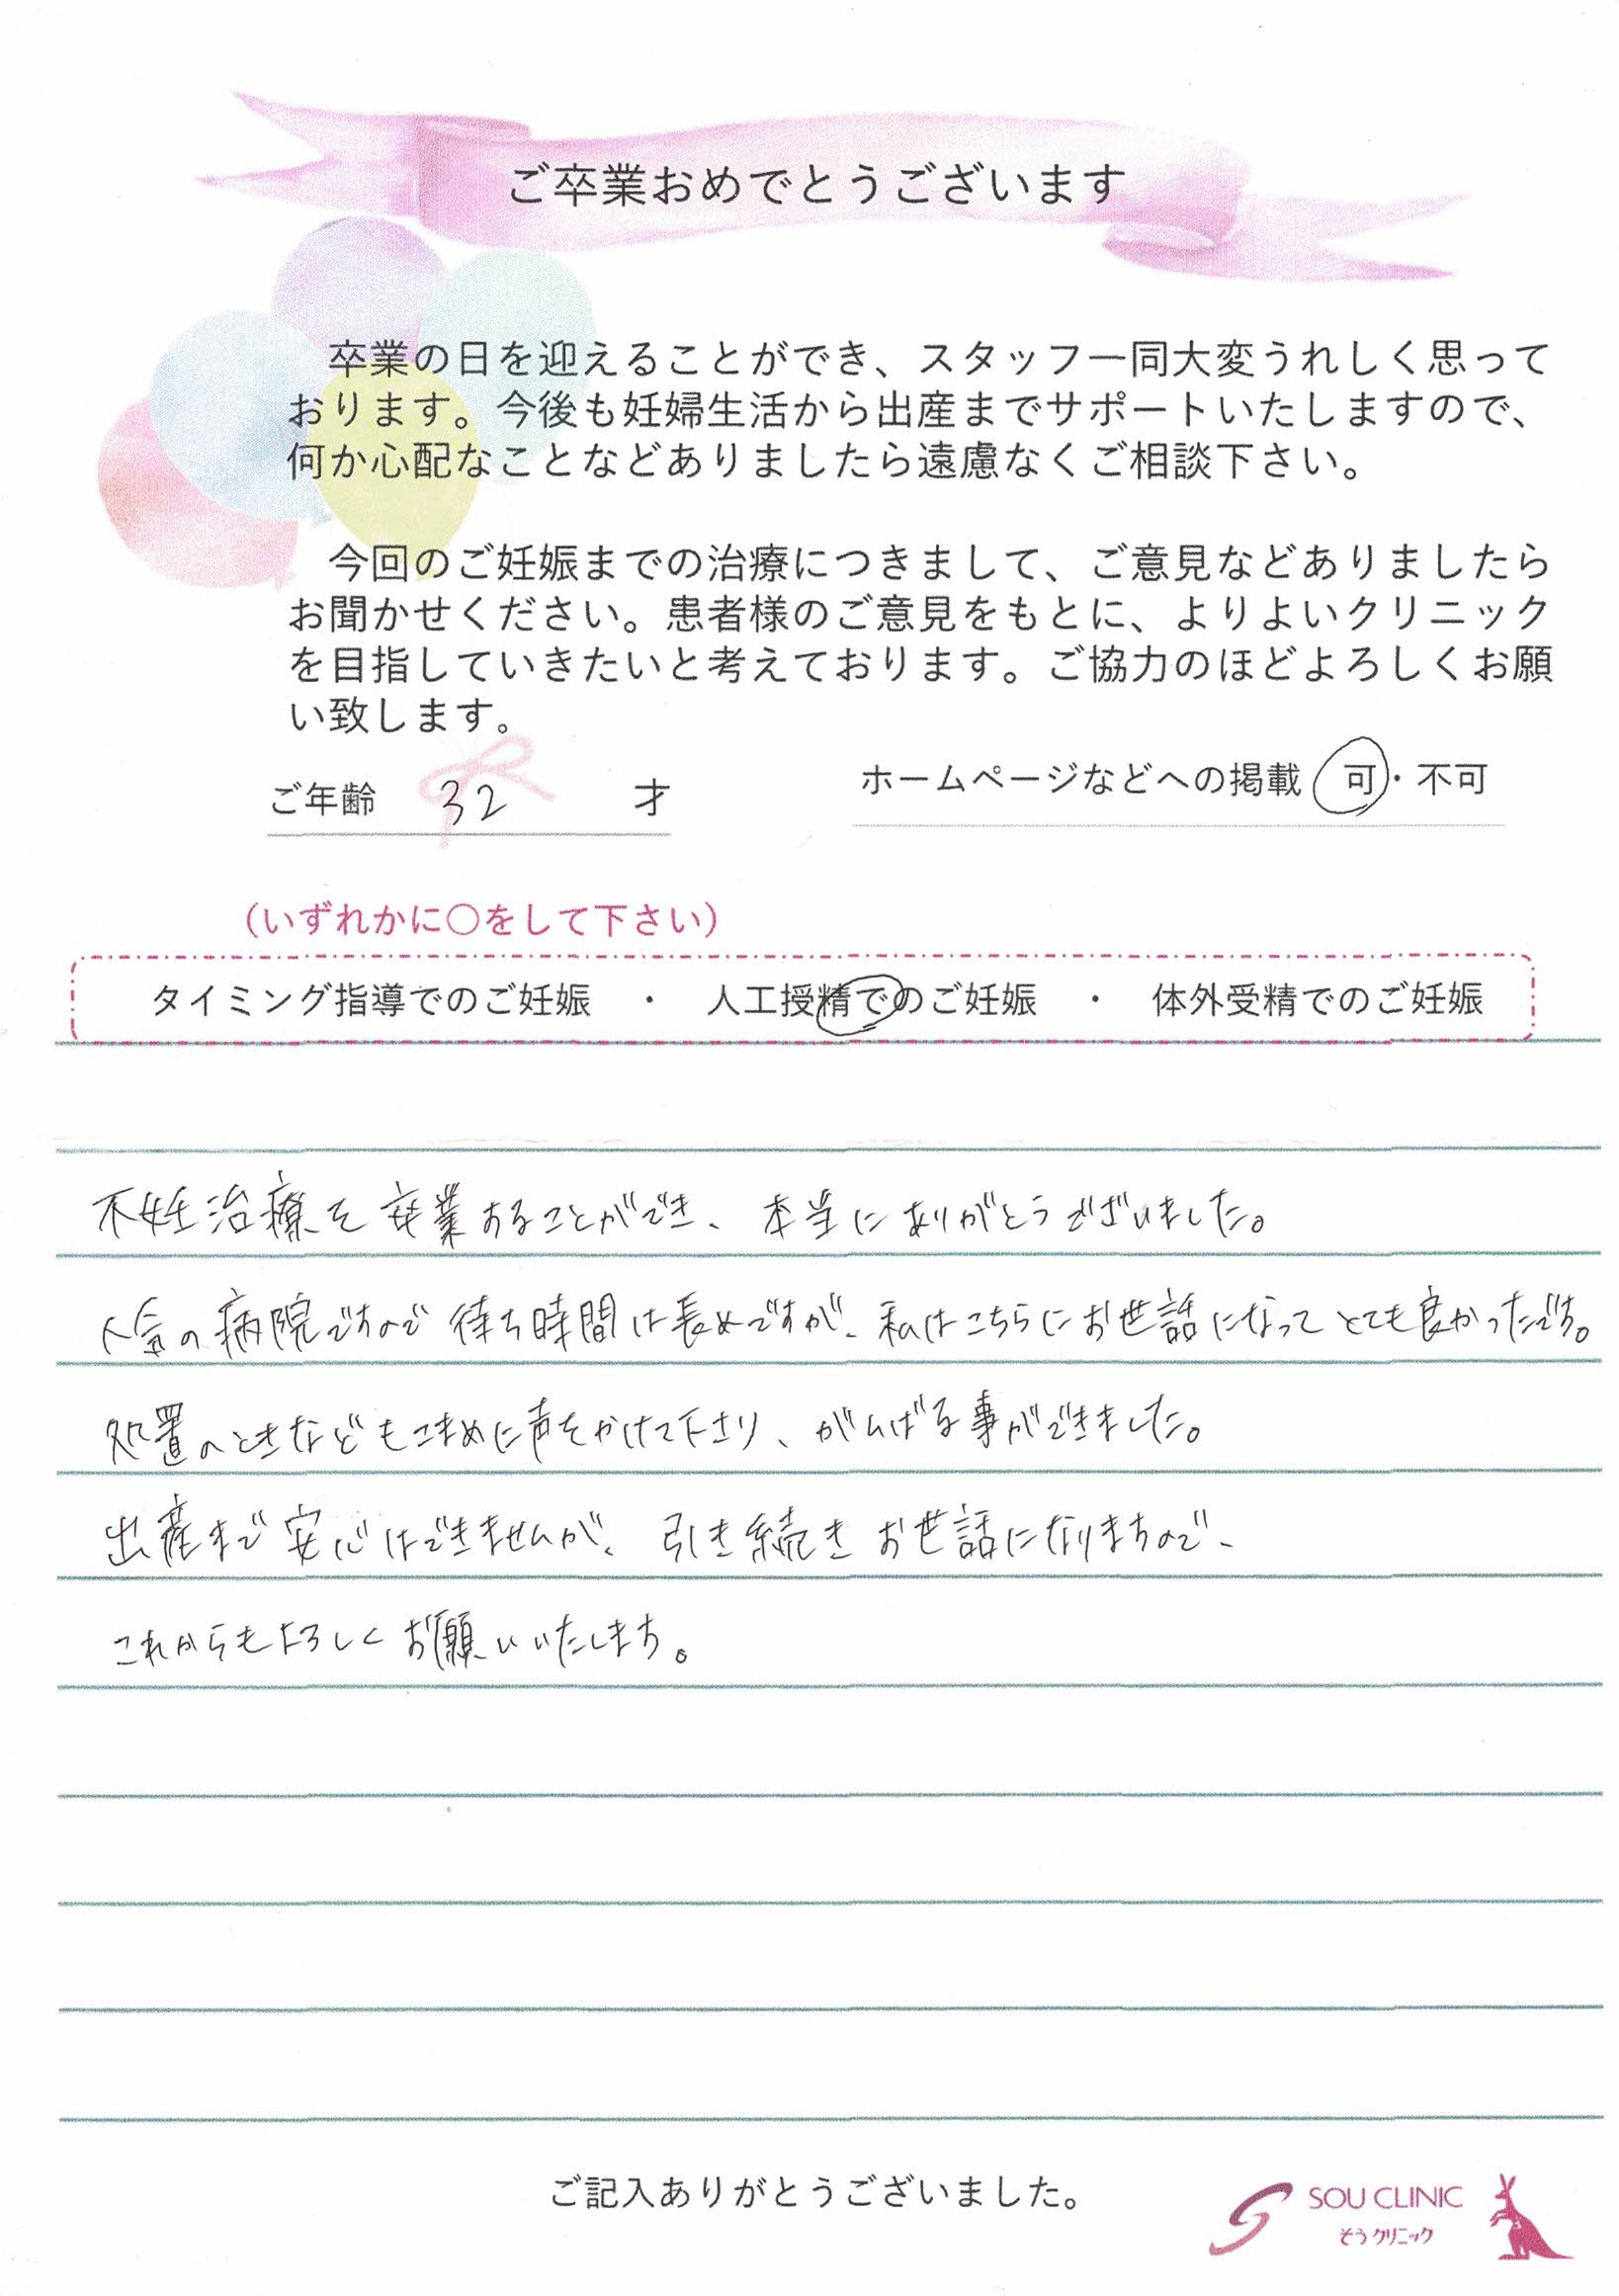 ご卒業おめでとうございます
卒業の日を迎えることができ、スタッフ一同大変うれしく思って
おります。今後も妊婦生活から出産までサポートいたしますので、
何か心配なことなどありましたら遠慮なくご相談下さい。
今回のご妊娠までの治療につきまして、ご意見などありましたら
お聞かせください。患者様のご意見をもとに、よりよいクリニック
を目指していきたいと考えております。ご協力のほどよろしくお願
い致します。
ご年齢 32 才 ホームページなどへの掲載 可・不可
（いずれかに○をして下さい）
タイミング指導でのご妊娠 ・ 人工授精でのご妊娠 ・ 体外受精でのご妊娠
不妊治療を卒業することができ、本当にありがとうございました。
人気の病院ですので待ち時間は長めですが、私はこちらにお世話になってとても良かったです。
処置のときなどもこまめに声をかけて下さり、がんばる事ができました。
出産まで安心はできませんが、引き続きお世話になりますので、
これからもよろしくお願いいたします。
ご記入ありがとうございました。
SOU CLINIC
そうクリニック